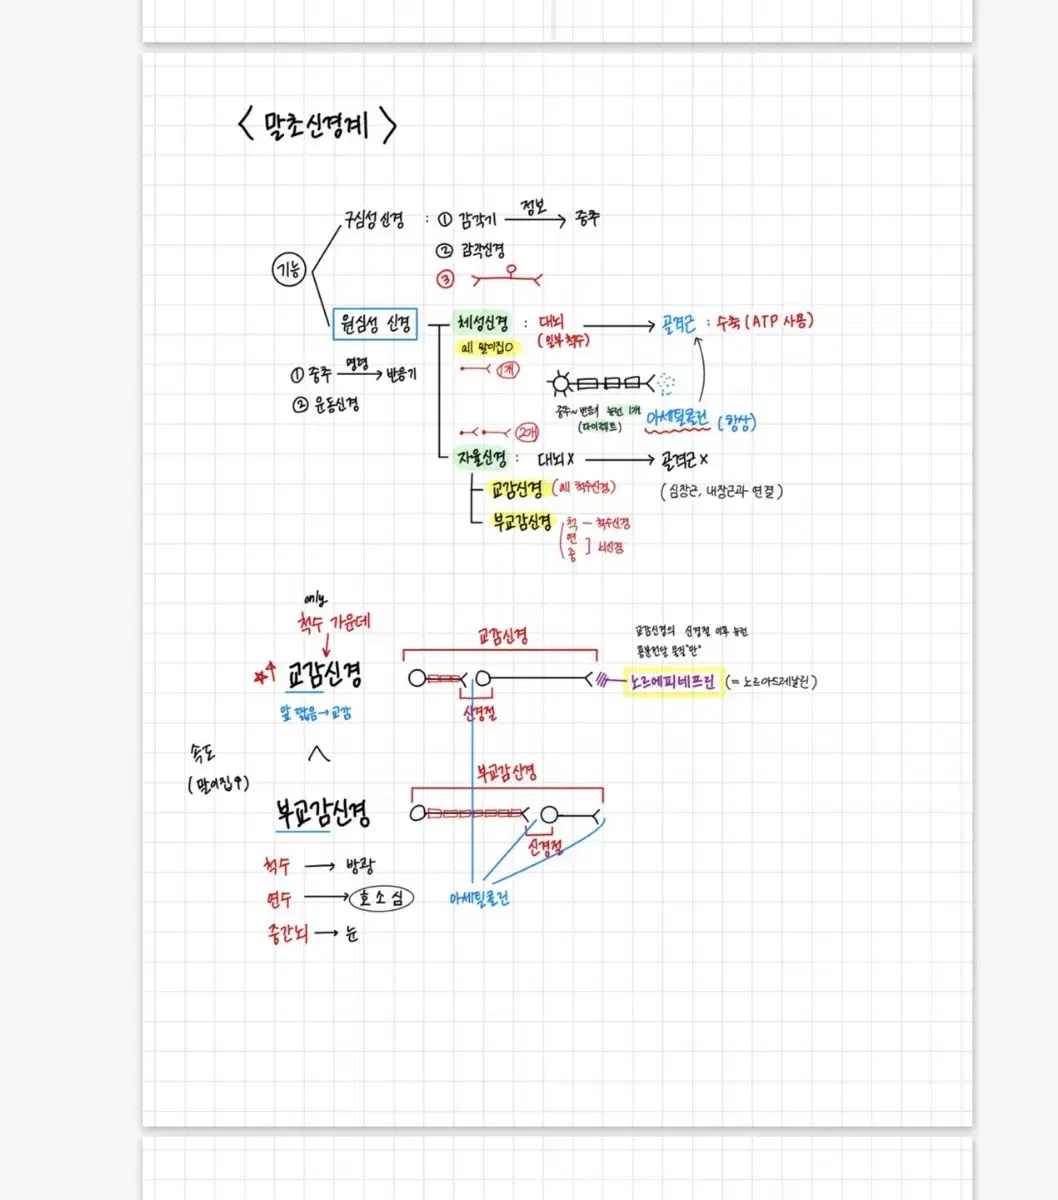 < 말초신경계 >
구심성 신경 : ① 감각기 정보 → 중추
② 감각신경
③
기능
원심성 신경
① 중추 명령 → 반응기
② 운동신경
체성신경 : 대뇌 (일부 척수) → 골격근 : 수축 (ATP 사용)
all 말이집O
1개
중추~반응기 뉴런 1개
(다이렉트)
아세틸콜린 (항상)
2개
자율신경 : 대뇌X → 골격근X
(심장근, 내장근과 연결)
교감신경 (all 척수신경)
부교감신경
척 - 척수신경
연
중 ] 뇌신경
only
척수 가운데
교감신경
앞 짧음→교감
교감신경
신경절
교감신경의 신경절 이후 뉴런
흥분전달 물질"만"
노르에피네프린 (= 노르아드레날린)
속도
(말이집↑)
<
부교감신경
부교감신경
신경절
아세틸콜린
척수 → 방광
연수 → 호소심
중간뇌 → 눈